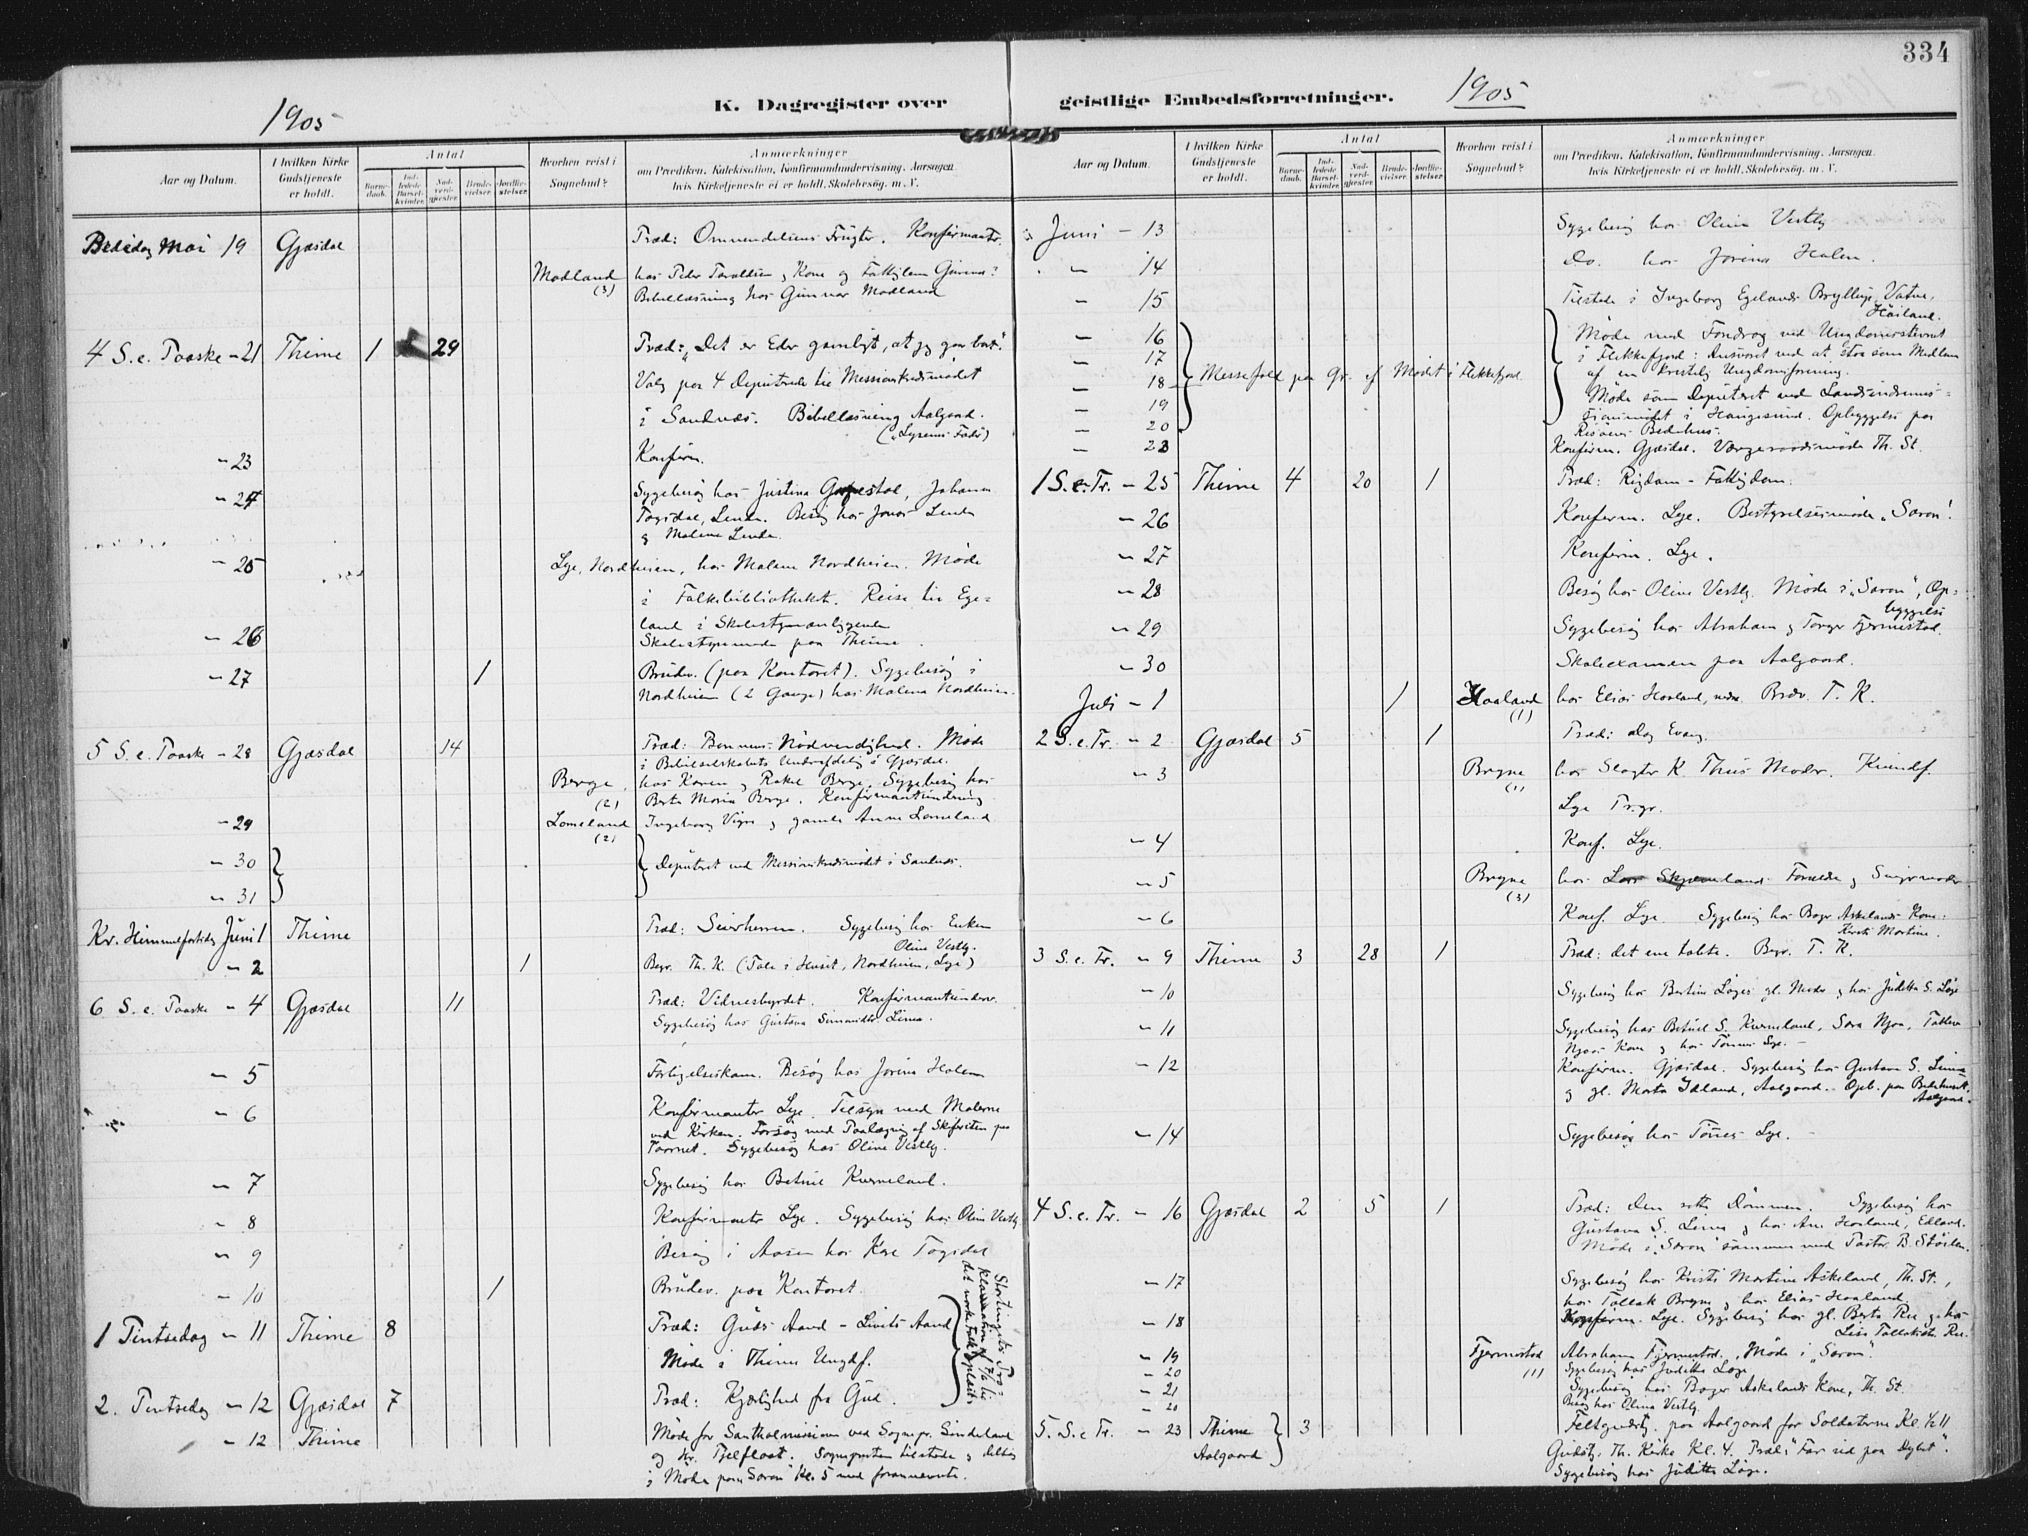 334
K. Dagregister over geistlige Embedsforretninger.
1905
1905
Aar og Datum.
I hvilken Kirke Gudstjeneste er holdt.
Antal
Barnedaab.
Indledede Barselkvinder.
Nadverdgjester.
Brudevielser.
Jordfæstelser.
Hvorhen reist i Sognebud?
Anmærkninger
om Prædiken, Katekisation, Konfirmandundervisning, Aarsagen, hvis Kirketjeneste ei er holdt, Skolebesøg, m. V.
Bededag Mai 19 Gjæsdal Præd: Omvendelsens Frugter. Konfirmanter.
Madland (3) hos Peder Taraldsen, Kone og
Bibellæsning hos Gunnar Madland
4 S. e. Paaske - 21 Thime 1 29 Præd: "Det er Eder gavnligt, at jeg gaar bort".
Valg paa 4 Deputerede til Missionskredsmødet
i Sandnæs. Bibellæsning Aalgaard.
- 23 Konfirm.
- 24 Sygebesøg hos Justina Johanne
Tagsdal, Lende. Besøg hos Jonas Lende
& Malene Lende.
- 25 Lye, Nordheien, hos Malene Nordheien. Møde
i Folkebibliotheket. Reise til Ege=
land i Skolestyreanliggender
- 26 Skolestyremøde paa Thime.
- 27 1 Brudev. (paa Kontoret). Sygebesøg i
Nordheien (2 Gange) hos Malena Nordheien.
5 S. e. Paaske - 28 Gjæsdal 14 Præd: Bønnens Nødvendighed. Møde
i Bibelselskabets Underafdeling i Gjæsdal.
Berge (2) hos Karen & Rakel Berge. Sygebesøg hos
Berte Maria Berge. Konfirmantundervisning
- 29 Lomeland (2) Ingeborg Vigre & gamle Anne Lomeland
- 30
- 31 Deputeret ved Missionskredsmødet i Sandnæs.
Kr. Himmelfartsdag Juni 1 Thime Præd: Seierherren. Sygebesøg hos Enken
Oline Vestly.
- 2 1 Begr. Th. K. (Tale i Huset, Nordheien, Lye)
6 S. e. Paaske - 4 Gjæsdal 11 Præd: Vidnesbyrdet. Konfirmantunderv.
Sygebesøg hos Gustava Lima.
- 5 Forligelseskom. Besøg hos Jorina Halen
- 6 Konfirmanter Lye. Tilsyn med Malerne
ved Kirken. Forsøg med Paalægning af Skifersten paa
Taarnet. Sygebesøg hos Oline Vestly.
- 7 Sygebesøg hos Betuel Kverneland.
- 8 Konfirmanter Lye. Sygebesøg hos Oline Vestly
- 9 Besøg i Aasen hos Kare Tagsdal
- 10 1 Brudev. paa Kontoret.
1 Pintsedag - 11 Thime 8 Præd: Guds Aand - Livets Aand
Møde i Thime Ungdf.
Stortingets Pro=
klamation af 7/6 til
det norske Folk oplæst
2. Pintsedag - 12 Gjæsdal 7 Præd: Kjærlighed fra Gud.
- 12 Thime Møde for Santhalmissionen ved Sognepr. Sinderland
og Kr. Tjelflaat. Sognepresten tilstede & deltog
i Møde paa "Saron" Kl. 5 med forannævnte.
Juni - 13 Sygebesøg hos Olina Vestly
- 14 Do. hos Jorina Halen.
- 15 Tilstede i Ingeborg Egelands Bryllup, Vatne,
Høiland.
- 16
- 17
- 18
- 19
- 20
Messefald paa Gr. af Mødet i Flekkefjord.
Møde med Foredrag ved Ungdomsstevnet
i Flekkefjord: Ansvaret ved at staa som Medlem
af en kristelig Ungdomsforening.
Møde som Deputeret ved Landsindremis=
sionsmødet i Haugesund. Opbyggelse paa
Risøens Bedehus.
- 23 Konfirm. Gjæsdal. Værgeraadsmøde Th. St.
1 S. e. Tr. - 25 Thime 4 20 1 Præd: Rigdom - Fattigdom.
- 26 Konfirm. Lye. Bestyrelsesmøde "Saron".
- 27 Konfirm. Lye.
- 28 Besøg hos Oline Vestly. Møde i "Saron", Op=
byggelse
- 29 Sygebesøg hos Abraham & Torger Fjermestad.
- 30 Skoleexamen paa Aalgaard.
Juli - 1 1 Haaland (1) hos Elias Haaland, nedre. Brdv. T. K.
2 S. e. Tr. - 2 Gjæsdal 5 1 Præd: Dag. Evang.
- 3 Bryne (1) hos Slagter K. Thus Moder. Kvindf.
Lye Tr.gr.
- 4 Konf. Lye.
- 5 Bryne (3) hos Lars Skjæveland Forældre & Svigermoder
- 6 Konf. Lye. Sygebesøg hos Boger Askelands Kone:
Kirsti Martine.
3 S. e. Tr. - 9 Thime 3 28 1 Præd: det ene tabte. Begr. T. K.
- 10 Sygebesøg hos Bertine Løges gl. Moder & hos Juditta S. Løge
- 11 Sygebesøg hos Betuel S. Kverneland, Sara Njaa, Tollev
Njaas Kone & hos Tønnes Lye.
- 12 Konfirm. Gjæsdal. Sygebesøg hos Gustava S. Lima
& gl. Marta Idland, Aalgaard. Opb. paa Bedehuset,
Aalgaard.
- 14 Sygebesøg hos Tønes Lye.
4 S. e. Tr. - 16 Gjæsdal 2 5 1 Præd: Den rette Dømmen. Sygebesøg hos
Gustava S. Lima & hos Ane Haaland, Edland.
Møde i "Saron" sammen med Pastor B. Støilen.
- 17 Sygebesøg hos Kristi Martine Askeland, Th. St.,
hos Tollak Bryne & hos Elias Haaland.
- 18 Konfirm. Lye. Sygebesøg hos gl. Berte Ree & hos
Lise Tollaksdtr. Ree.
- 19 Fjermestad (1) Abraham Fjermestad. Møde i "Saron".
- 20 Sygebesøg hos Juditta Løge
- 21 Sygebesøg hos Boger Askelands Kone, Th. St.
Besøg hos Olina Vestly.
5. S. e. Tr. - 23 Thime Aalgaard 3 Feltgudstj. paa Aalgaard for Soldaterne Kl. 1/2 11
Gudstj. Th. Kirke Kl. 4. Præd: "Far ud paa Dybet".
Sygebesøg hos Juditta Løge.